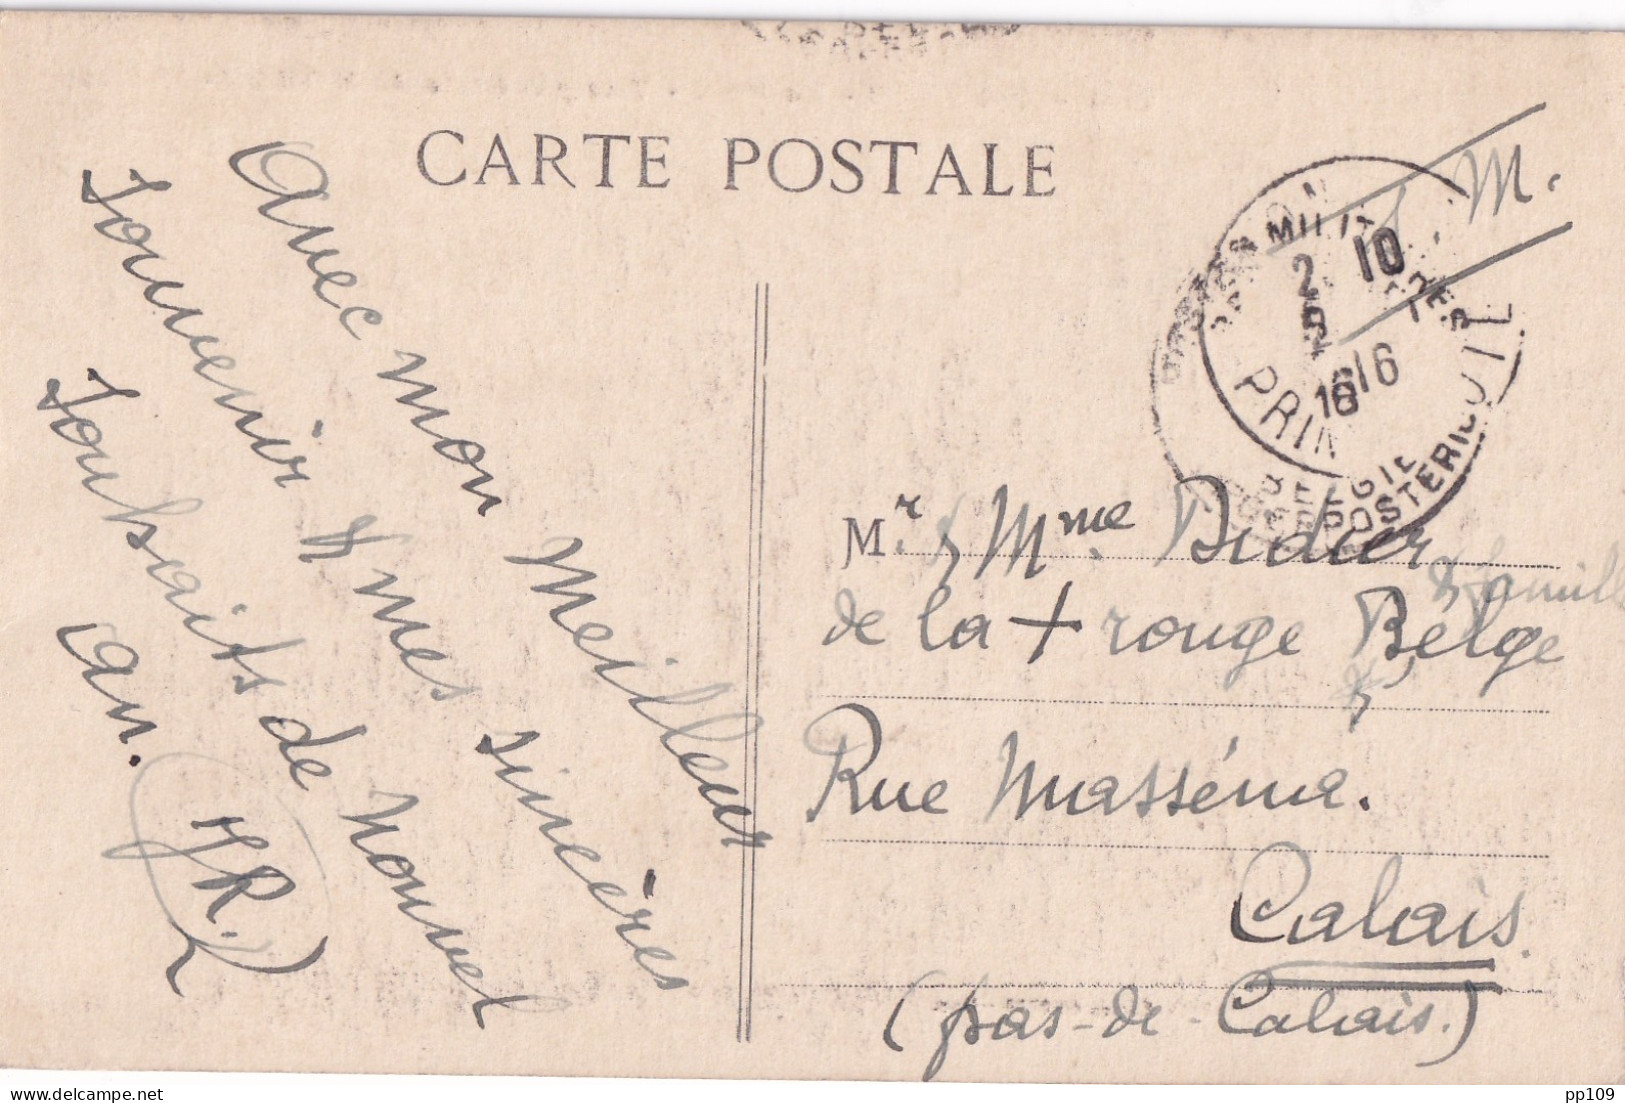 CARTE POSTALE
S. M.
Avec mon Meilleur
Souvenir & mes sincères
Souhaits de nouvel
an.
HR.
MILIT
2 10
16
PRIN
POSTERIJ
Mr. & Mme. Didier
& famille
de la + rouge Belge
Rue Masséna.
Calais.
(pas-de-Calais.)
pp109